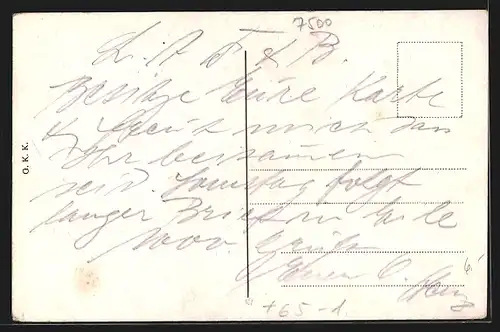 7500
L. A. F & B.
Besitze Eure Karte
& freut mich das
Ihr beisamen
seid. Samstag folgt
langer Brief in Eile
Gruß
O. K. K.
+65-d